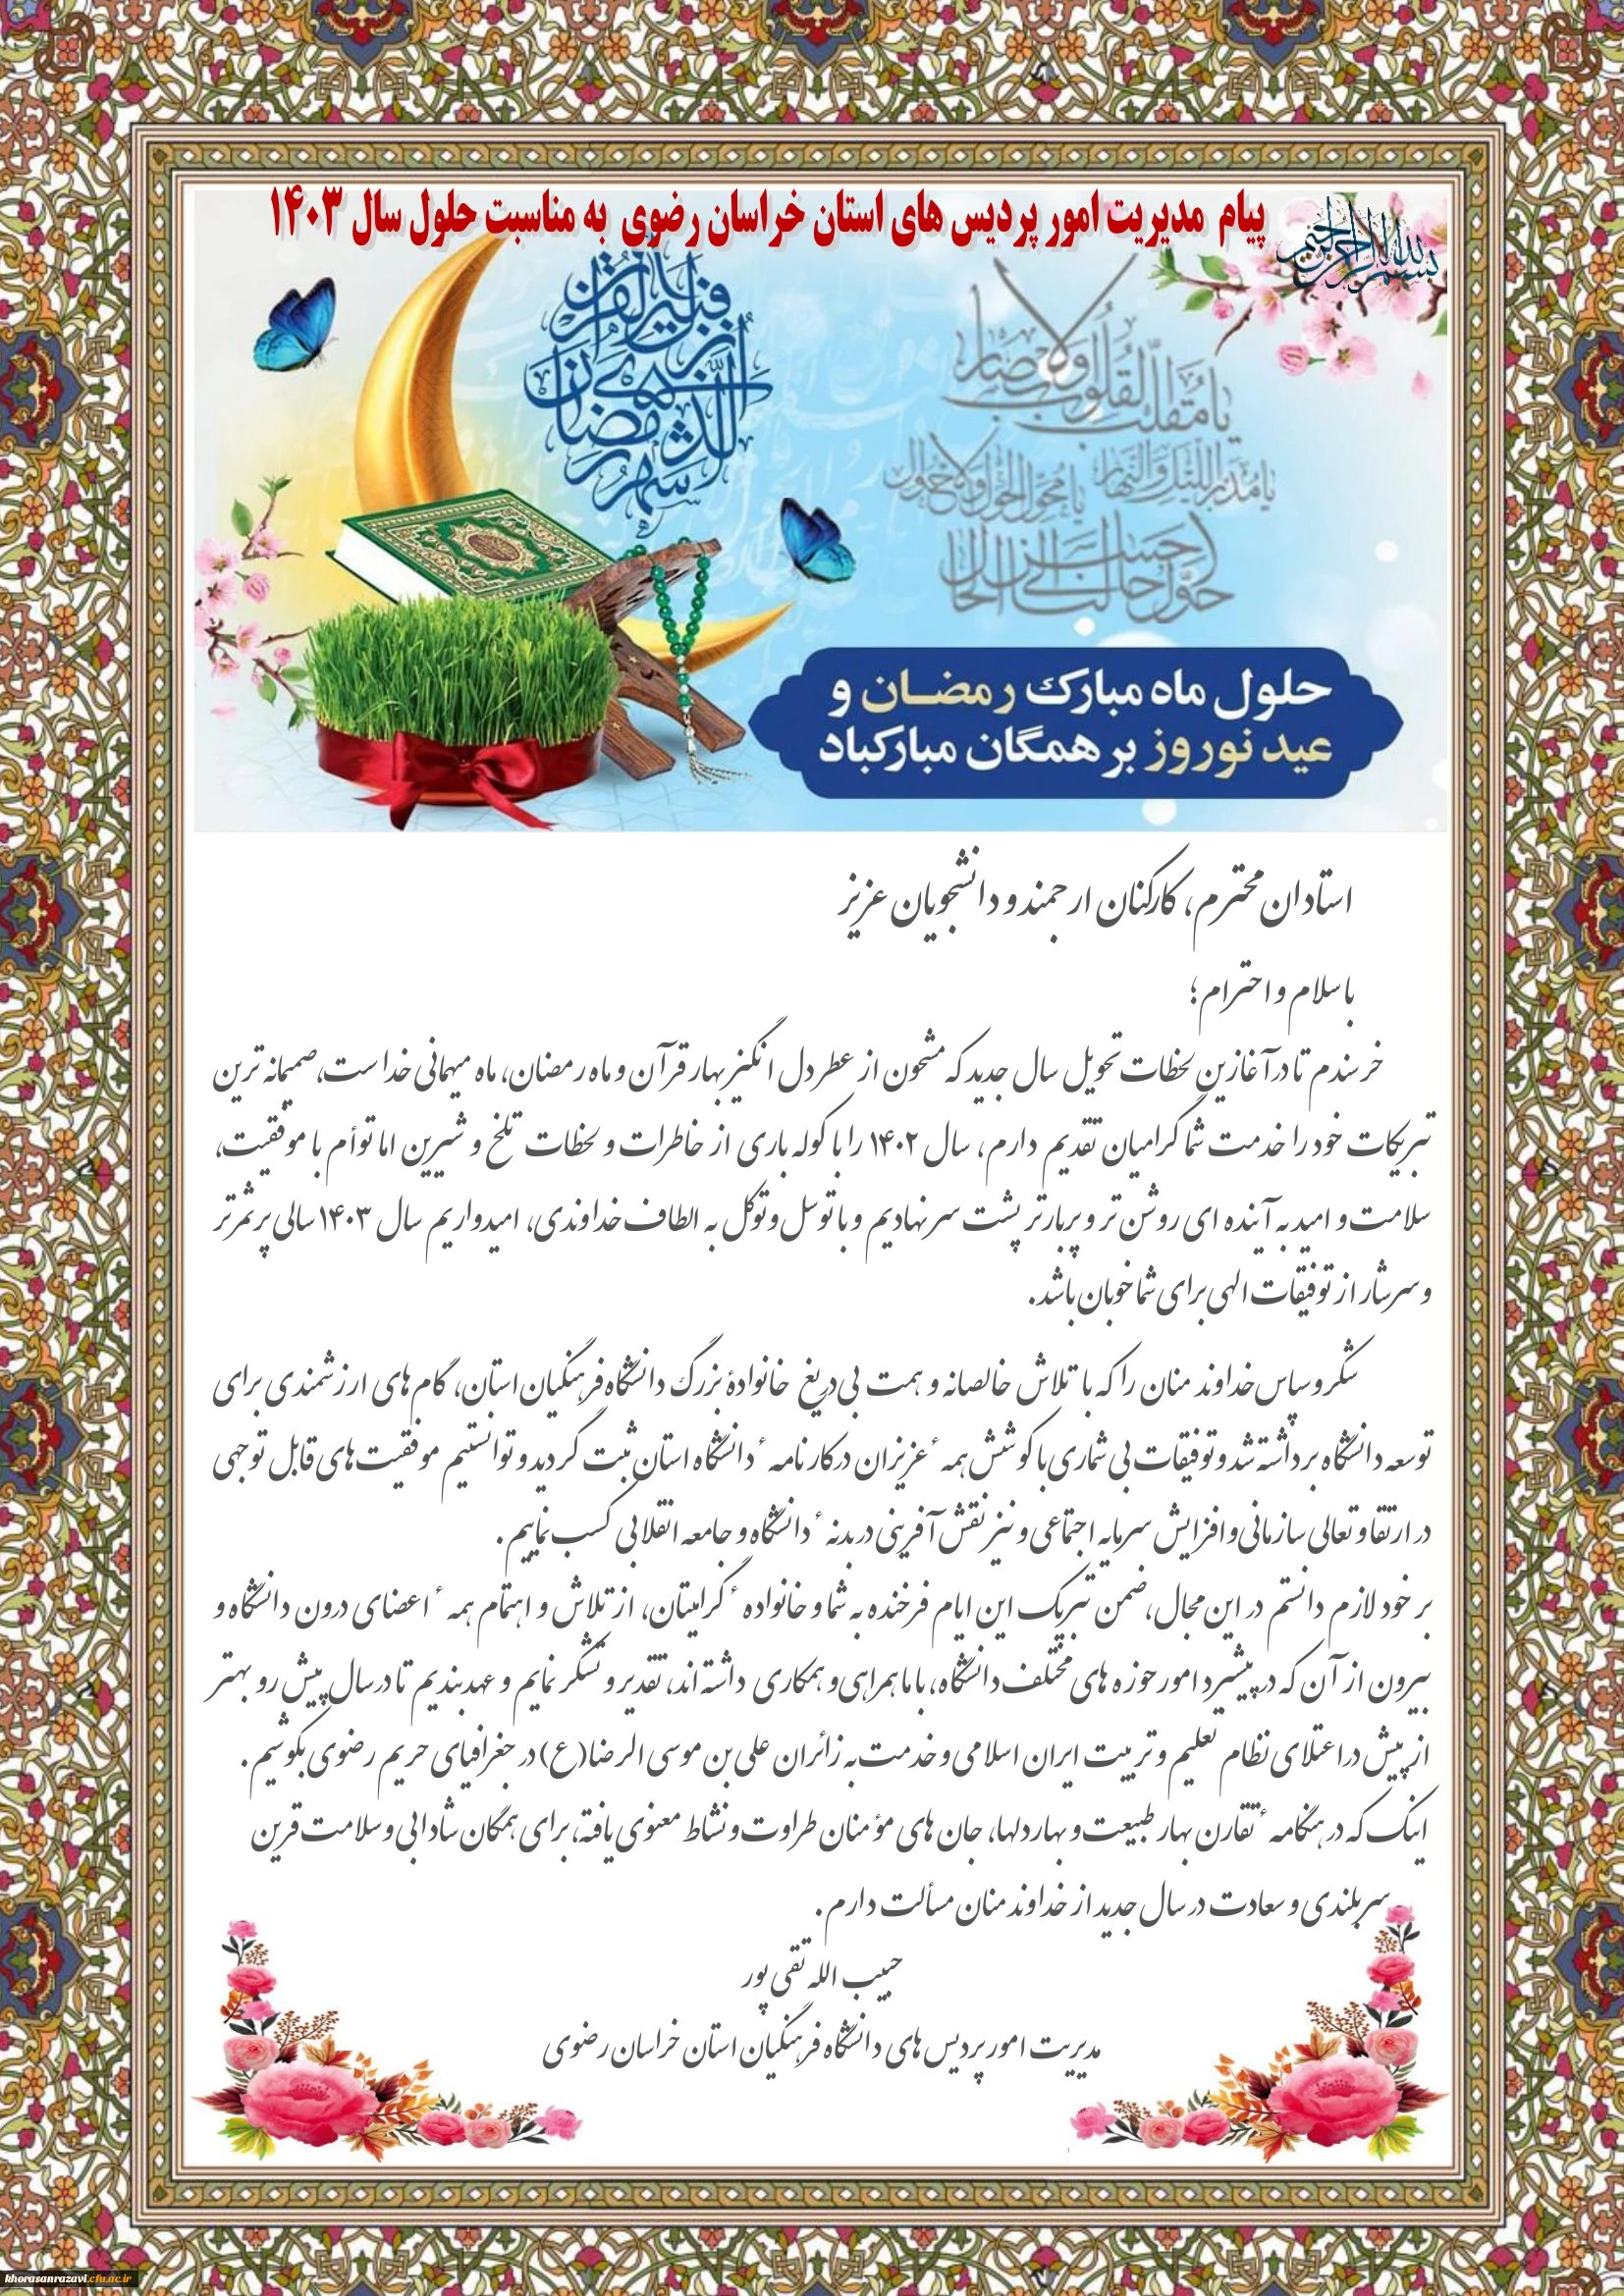 بسم الله الرحمن الرحیم
پیام مدیریت امور پردیس های استان خراسان رضوی به مناسبت حلول سال ۱۴۰۳
شهر رمضان الذی انزل فیه القرآن
یا مقلب القلوب والابصار
یا مدبر اللیل والنهار یا محول الحول والاحوال
حول حالنا الی احسن الحال
حلول ماه مبارک رمضان و
عید نوروز بر همگان مبارکباد
استادان محترم، کارکنان ارجمند و دانشجویان عزیز
با سلام و احترام؛
خرسندم تا در آغازین لحظات تحویل سال جدید که مشحون از عطر دل انگیز بهار قرآن و ماه رمضان، ماه میهمانی خداست، صمیمانه ترین
تبریکات خود را خدمت شما گرامیان تقدیم دارم، سال ۱۴۰۲ را با کوله باری از خاطرات و لحظات تلخ و شیرین اما توأم با موفقیت،
سلامت و امید به آینده ای روشن تر و پربارتر پشت سر نهادیم و با توسل و توکل به الطاف خداوندی، امیدواریم سال ۱۴۰۳ سالی پرثمرتر
و سرشار از توفیقات الهی برای شما خوبان باشد.
شکر و سپاس خداوند منان را که با تلاش خالصانه و همت بی دریغ خانوادهٔ بزرگ دانشگاه فرهنگیان استان، گام های ارزشمندی برای
توسعه دانشگاه برداشته شد و توفیقات بی شماری با کوشش همهٔ عزیزان در کارنامهٔ دانشگاه استان ثبت گردید و توانستیم موفقیت های قابل توجهی
در ارتقا و تعالی سازمانی و افزایش سرمایه اجتماعی و نیز نقش آفرینی در بدنهٔ دانشگاه و جامعه انقلابی کسب نماییم.
بر خود لازم دانستم در این مجال، ضمن تبریک این ایام فرخنده به شما و خانوادهٔ گرامیتان، از تلاش و اهتمام همهٔ اعضای درون دانشگاه و
بیرون از آن که در پیشبرد امور حوزه های مختلف دانشگاه، با ما همراهی و همکاری داشته اند، تقدیر و تشکر نمایم و عهد بندیم تا در سال پیش رو بهتر
از پیش در اعتلای نظام تعلیم و تربیت ایران اسلامی و خدمت به زائران علی بن موسی الرضا(ع) در جغرافیای حریم رضوی بکوشیم.
اینک که در هنگامهٔ تقارن بهار طبیعت و بهار دلها، جان های مؤمنان طراوت و نشاط معنوی یافته، برای همگان شادابی و سلامت قرین
سربلندی و سعادت در سال جدید از خداوند منان مسألت دارم.
حبیب الله تقی پور
مدیریت امور پردیس های دانشگاه فرهنگیان استان خراسان رضوی
khorasanrazavi.cfu.ac.ir